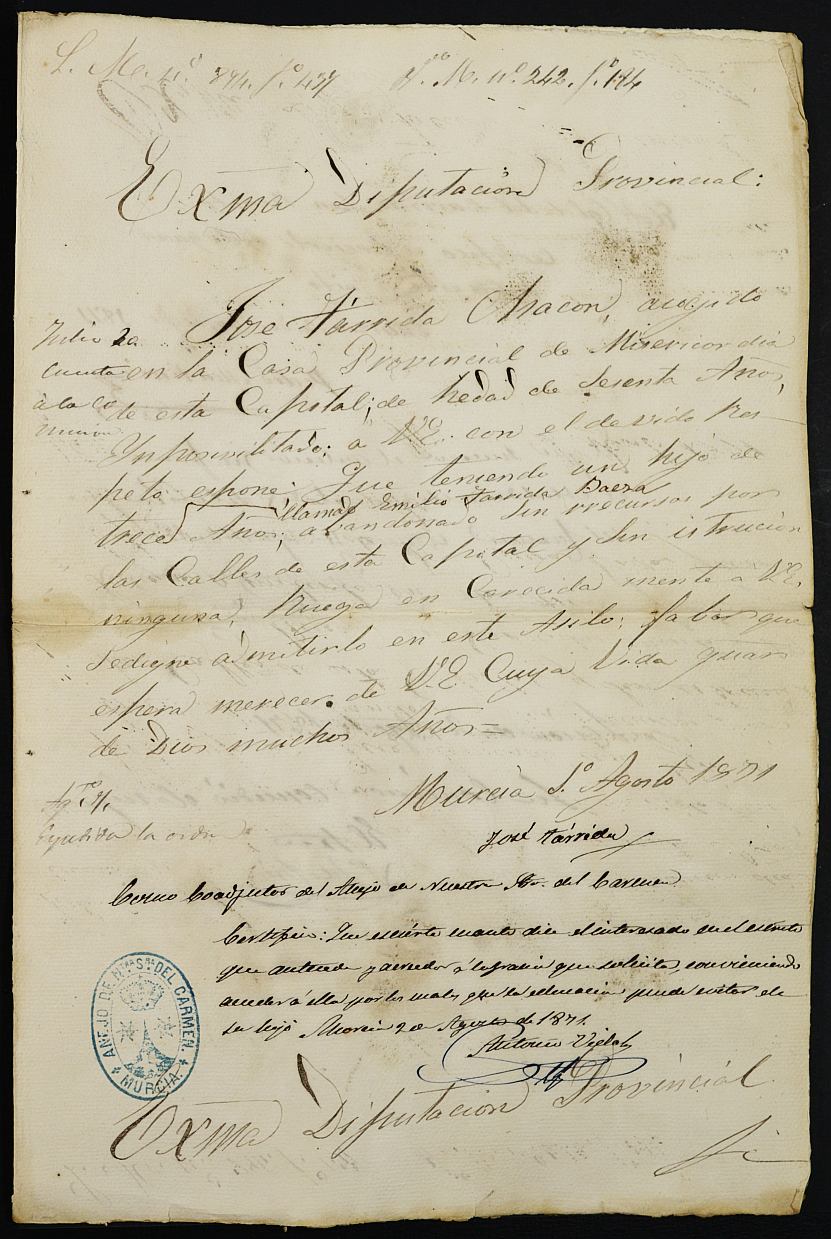 L. Me. nº 894. fº 437 Yº M. nº 242. fº 184
Exma Diputacion Provincial:
Jose Tárrida Chacon, acogido
en la Casa Provincial de Misericordia
de esta Capital; de hedad de Sesenta Años,
Imposivilitado; á V.E. con el devido Res-
peto espone: Que teniendo un hijo de
llamado Emilio Tarrida Baeza
trece Años; abandonado Sin rrecursos por
las Calles de esta Capital y Sin istrucion
ninguna, Ruega en Carecida mente a V.E.
Sedigne admitirlo en este Asilo; fabor que
espera merecer de V.E. Cuya Vida guar-
de Dios muchos Años=
Julio 20
Cuenta
à la Co
mision
Murcia 1º Agosto 1871
José Tárrida
Espedida la orden
Como Coadjutor del Anejo de Nuestra Sra. del Carmen
Certifico: Que es cierto cuanto dice el interesado en el escrito
que antecede y acredor á la gracia que solicita, conviniendo
acceder á ella por los males que la educacion puede evitar de
su hijo Murcia 2 de Agosto de 1871.
Antonio
AÑEJO DE Nª Sª DEL CARMEN. MURCIA
Exma Diputacion Provincial